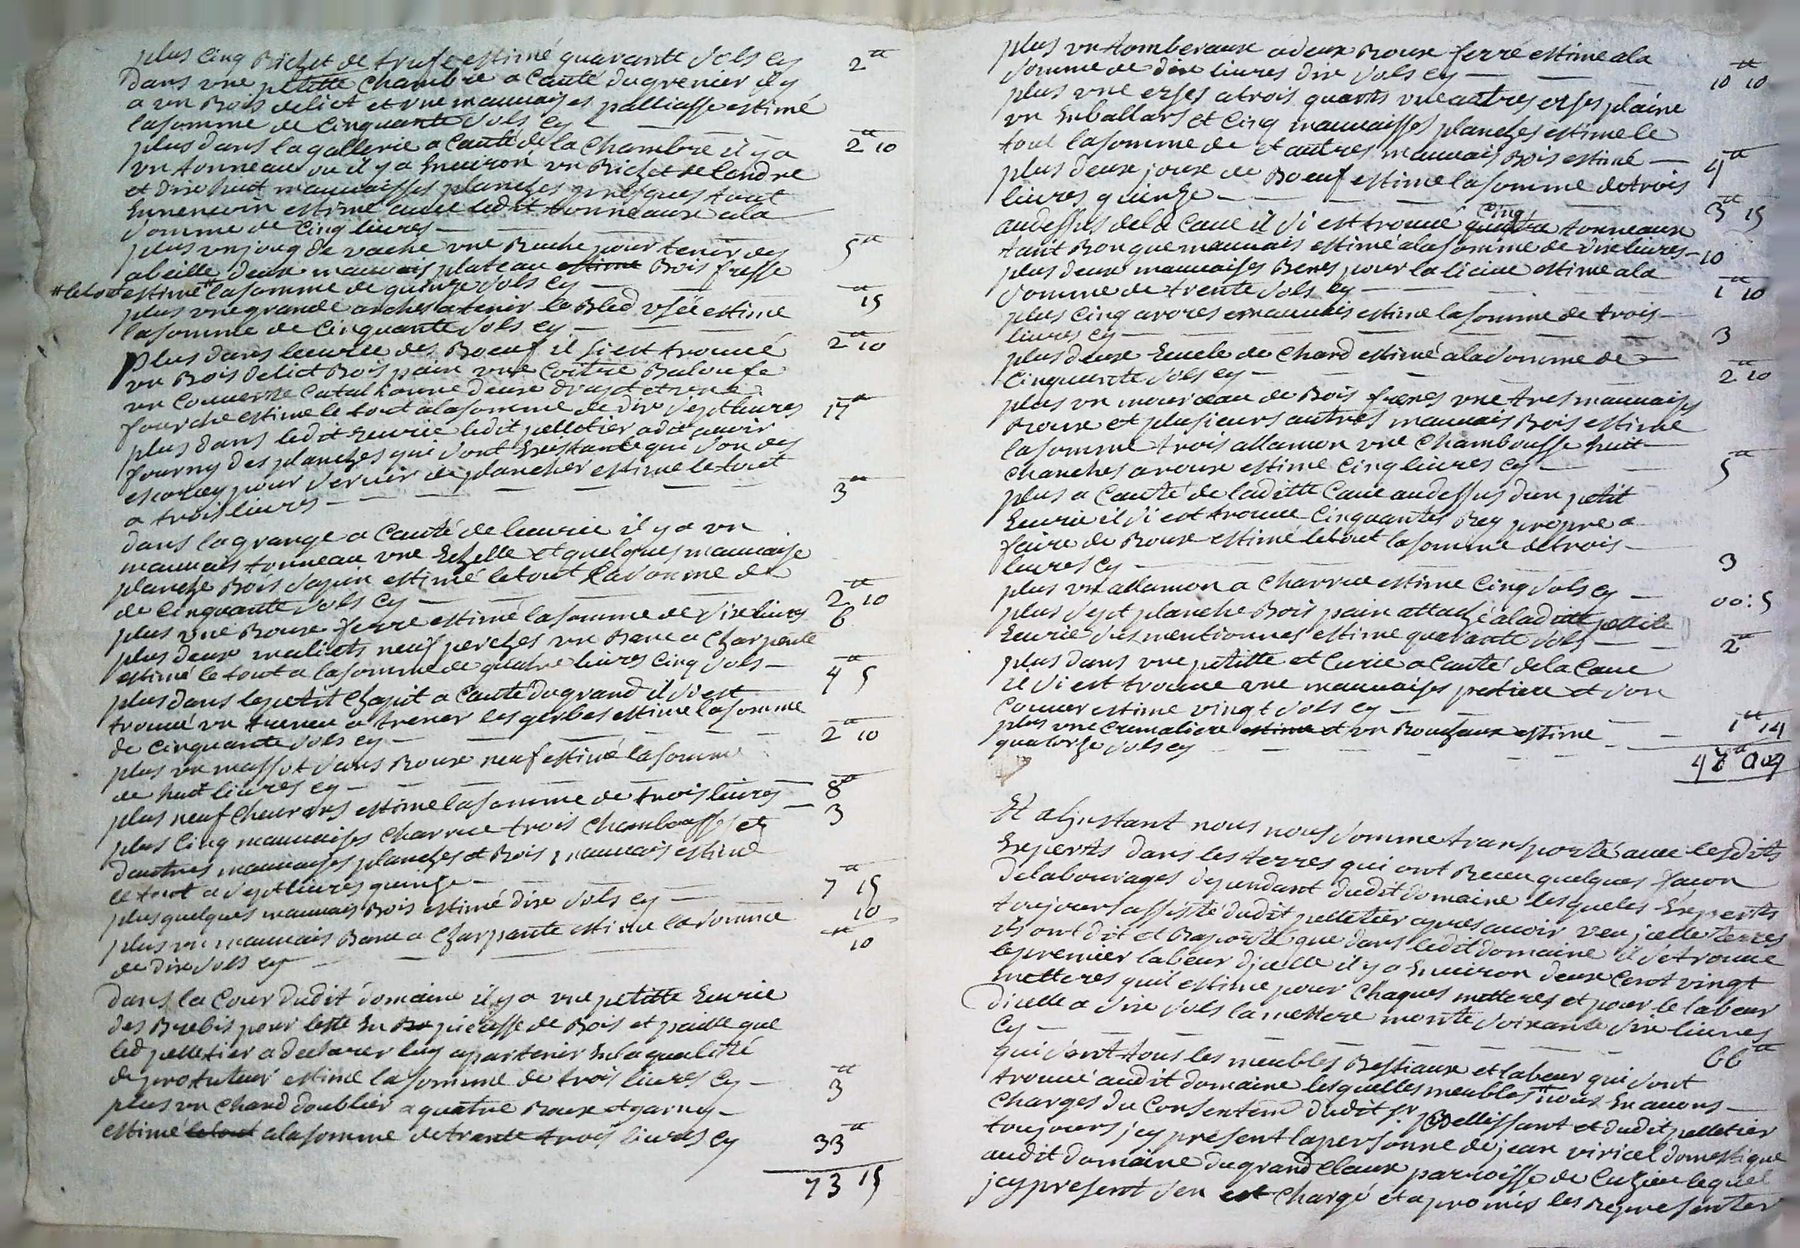 plus cinq Bichet de trufe estimé quarante sols cy 2ᵗᵗ
dans vne petitte chambre a Cauté du grenier il y
a vn Bois de lict et vne mauuaises palliasse estimé
la somme de cinquante sols cy 2ᵗᵗ 10
plus dans la gallerie a Cauté de la chambre il y a
vn tonneau ou il y a Enuiron vn Bichet de Cendre
et dix huit mauuaisses planches presques tout
estimé auec ledit tonneaux a la
somme de cinq liures 5ᵗᵗ
plus vn joug de vache vne Ruche pour tenir des
abeille deux mauuais plateau estimé Bois fresse
# le tout estimé # la somme de quinze sols cy ᵗᵗ 15
plus vne grande arches a tenir le Bled vsée estimé
la somme de cinquante sols cy 2ᵗᵗ 10
plus dans leurie des Boeuf il si est trouué
vn Bois de lict Bois pain vne Coitre Baloufe
vn Couuerte Catalhonne deux drapt et vne
fourche estimé le tout a la somme de dix sept liures 17ᵗᵗ
plus dans ledit Eeurie ledit pelletier a dit auoir
fourny des planches qui sont Existante qui son des
pour seruir de plancher estimé le tout
a trois liures 3ᵗᵗ
dans la grange a Cauté de leurie il y a vn
mauuais tonneau vne Echelle et quelques mauuaise
planche Bois sapin estimé le tout la somme de
de cinquante sols cy 2ᵗᵗ 10
plus vne Roue ferré estimé la somme de six liures 6
plus deux neuf perches vn Banc a Charpente
estimé le tout a la somme de quatre liures cinq sols 4ᵗᵗ 5
plus dans le petit Chapit a Cauté du grand il s'est
trouué vn treneu a trener les gerbes estimé la somme
de cinquante sols cy 2ᵗᵗ 10
plus vn massot sans Roue neuf estimé la somme
de huit liures cy 8ᵗᵗ
plus neuf cheurons estimé la somme de trois liures 3
plus cinq mauuaises charrue trois chambousses et
dautres mauuaises planches et Bois mauuais estimé
le tout a sept liures quinze 7ᵗᵗ 15
plus quelques mauuais Bois estimé dix sols cy 10
plus vn mauuais Banc a Charpante estimé la somme
de dix sols cy ᵗᵗ 10
dans la Cour dudit domaine il y a vne petitte Eeurie
des Brebis pour leste En Bo piecesse de Bois et paille que
led pelletier a declarer luy apartenir En la qualité
de protuteur estimé la somme de trois liures cy 3ᵗᵗ
plus vn Chard doublier a quatre Roues et garny
estimé le tout a la somme de trante trois liures cy 33ᵗᵗ
73 15
plus vn tomberaux a deux Roues ferré estimé a la
somme de dix liures dix sols cy 10ᵗᵗ 10
plus vne erses a trois quarts vne autres erses plaine
vn Enballars et cinq mauuaisses planches estimé le
tout la somme de et autres mauuais Bois estimé 4ᵗᵗ
plus deux joux de Boeuf estimé la somme de trois
liures quinze 3ᵗᵗ 15
au dessus de la Caue il si est trouué quatre cinq tonneaux
tant Bon que mauuais estimé a la somme de dix liures 10
plus deux mauuaises Benes pour la liciue estimé a la
somme de trente sols cy 1ᵗᵗ 10
plus cinq mauuais estimé la somme de trois
liures cy 3
plus deux Encele de Chard estimé a la somme de
cinquante sols cy 2ᵗᵗ 10
plus vn mourceau de Bois frenes vne tres mauuaises
Roue et plusieurs autres mauuais Bois estimé
la somme trois allamon vne chambousse huit
chanches a roue estimé cinq liures cy 5ᵗᵗ
plus a Cauté de laditte Caue au dessus d'un petit
Eeurie il si est trouué cinquantes Rey propre a
faire de Roue estimé le tout la somme de trois
liures cy 3
plus vn allamon a Charrue estimé cinq sols cy 00: 5
plus sept planche Bois pain attaché a laditte petite
Eeurie sus mentionnes estimé quarante sols 2ᵗᵗ
plus dans vne petitte et Curie a Cauté de la Caue
il si est trouué vne mauuaises pestiere et son
Couuer estimé vingt sols cy
plus vne Crimaliere estimé et vn Roufaux estimé
quatorze sols cy 1ᵗᵗ 14
Et a l'instant nous nous somme transporté auec lesdits
Experts dans les terres qui ont Receu quelques facon
de labourages dependant dudit domaine lesqueles Experts
toujours assisté dudit pelletier apres auoir veu jcelle terres
ils ont dit et Raporté que dans ledit domaine il s'etrouue
le premier labeur d'jcelle il y a Enuiron deux Cent vingt
metteres quil estime pour chaques metteres et pour le labeur
dicelle a six sols la mettere monte soixante six liures
cy 66ᵗᵗ
qui sont tous les meubles Bestiaux et labeur qui sont
trouué audit domaine lesquelles meubles nous En auons
charges du Consentem dudit sr Pellissant et dudit pelletier
toujours jcy present la personne de jean viricel domestique
audit domaine du grand Claux parroisse de Cuzieu lequel
jcy present s'en est chargé et a promis les Representer